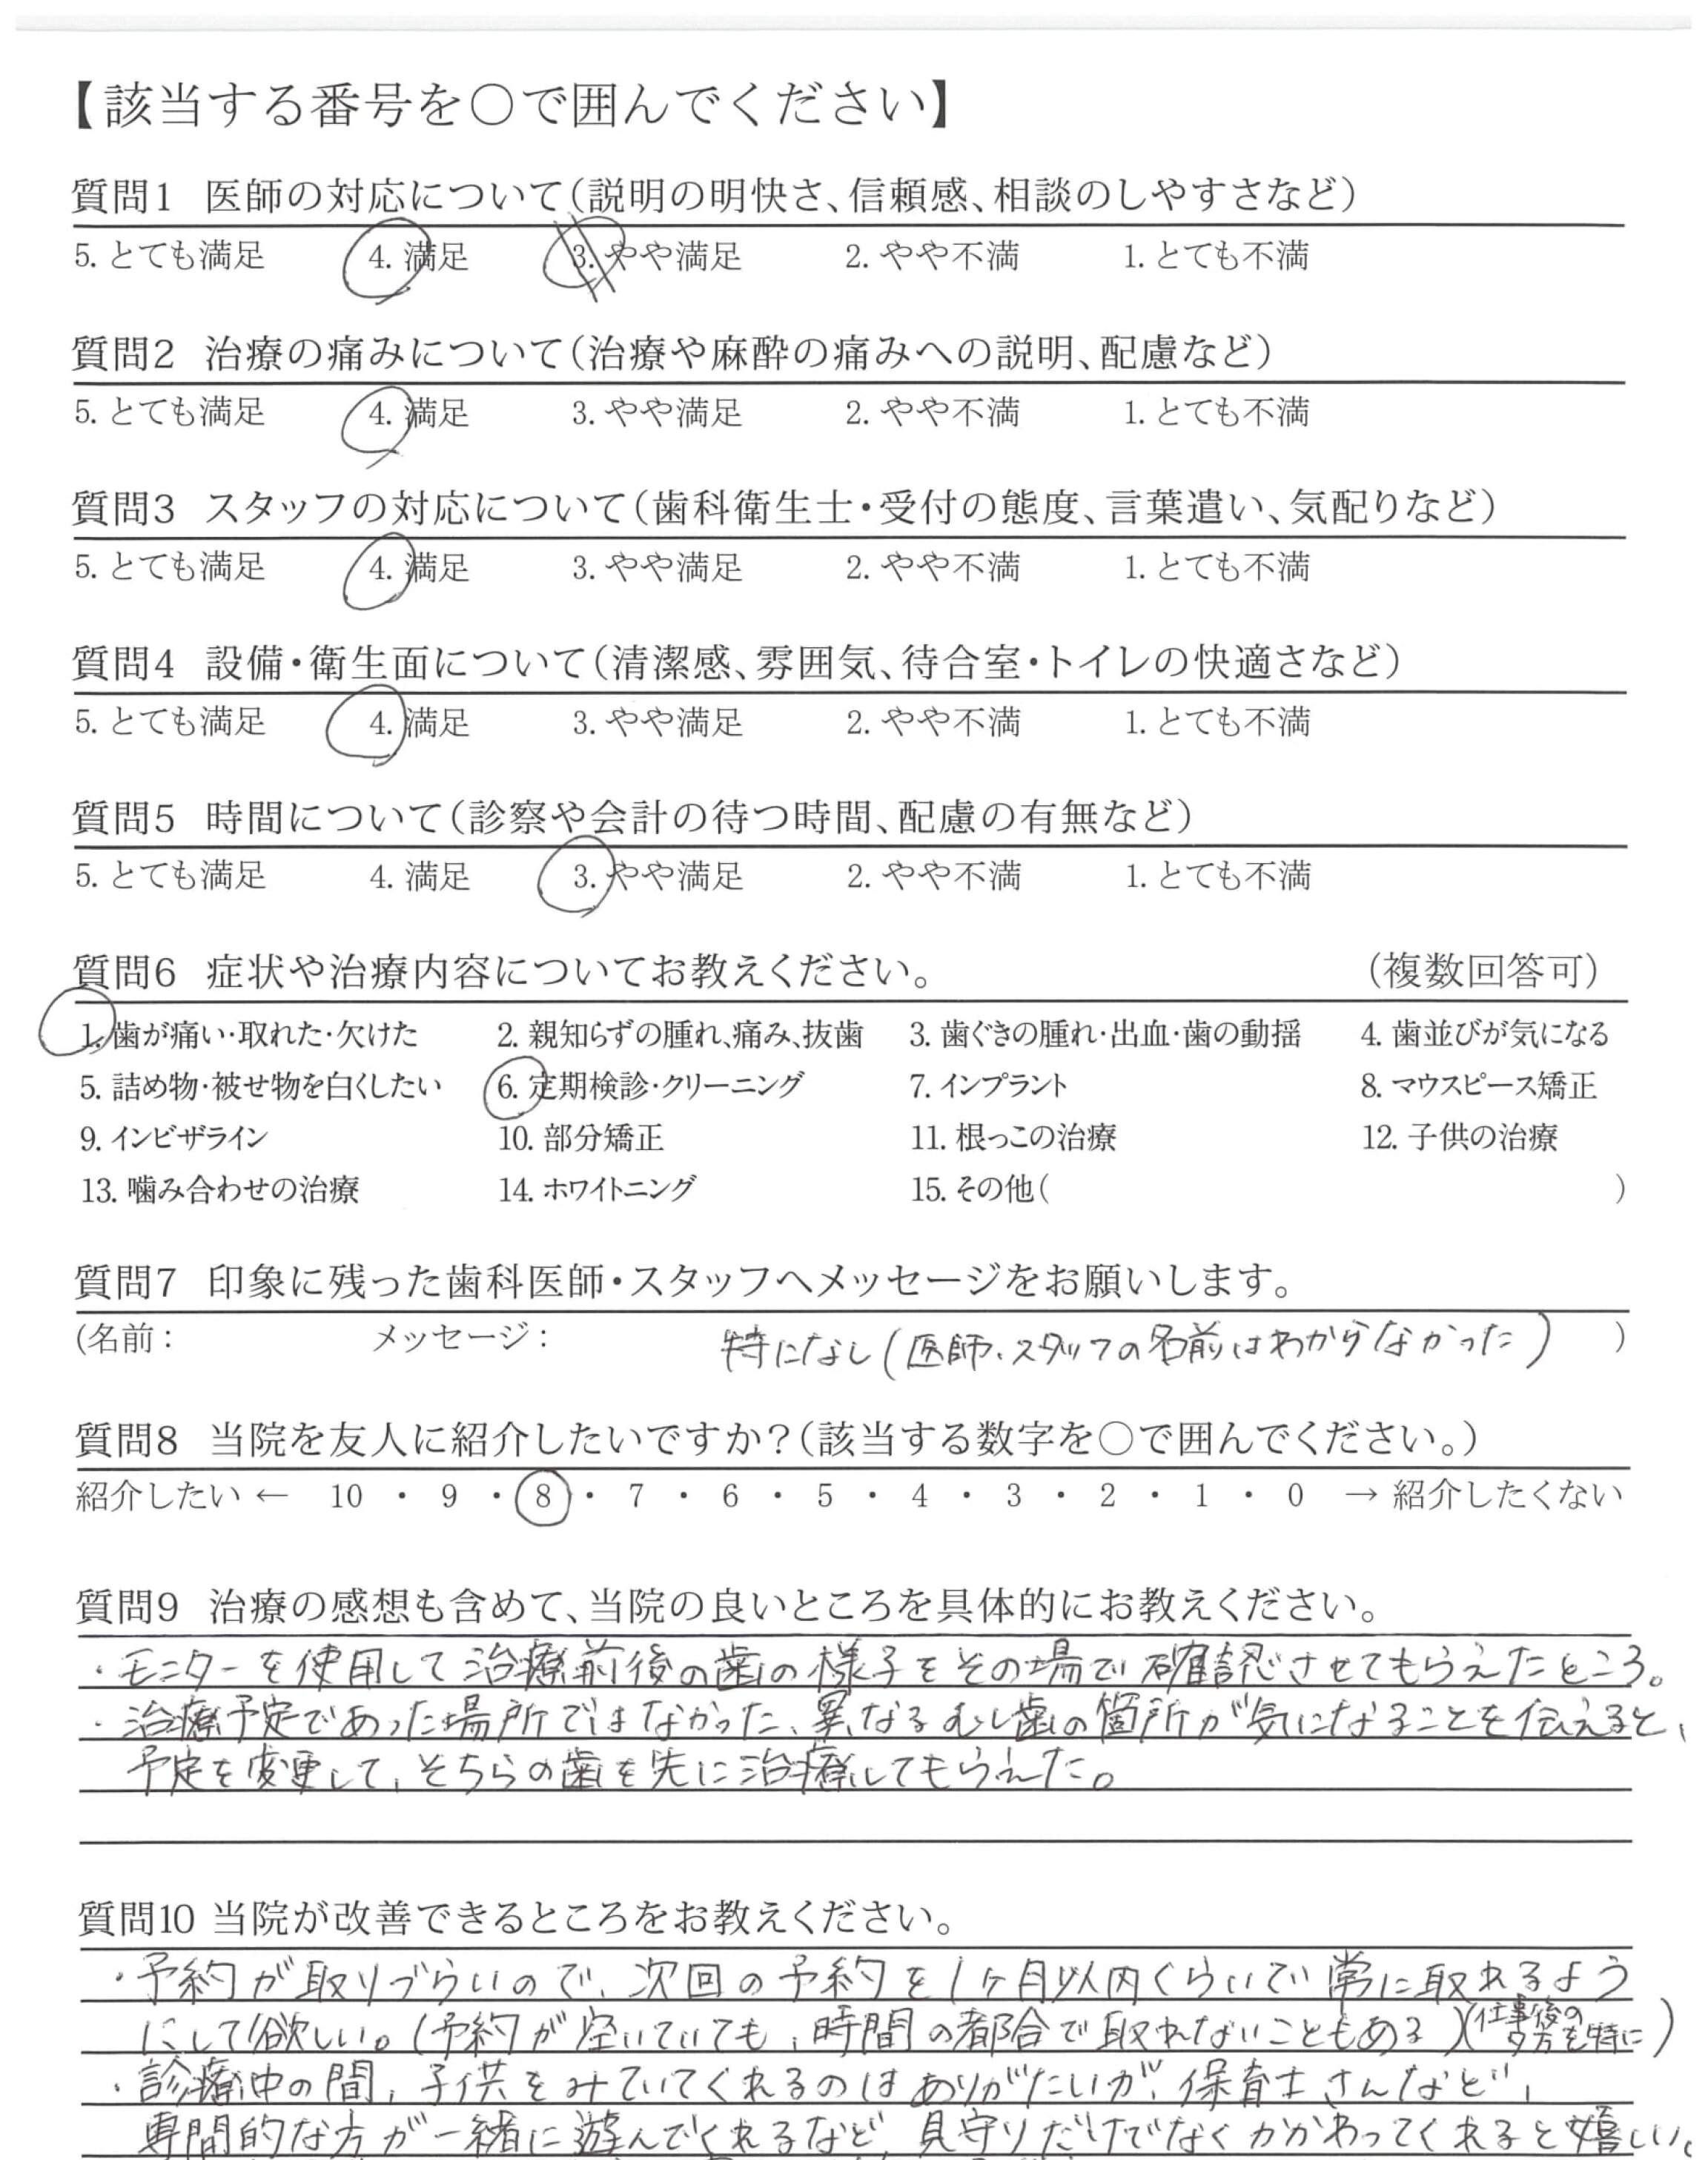 【該当する番号を○で囲んでください】
質問1 医師の対応について(説明の明快さ、信頼感、相談のしやすさなど)
5. とても満足 4. 満足 3. やや満足 2. やや不満 1. とても不満
質問2 治療の痛みについて(治療や麻酔の痛みへの説明、配慮など)
5. とても満足 4. 満足 3. やや満足 2. やや不満 1. とても不満
質問3 スタッフの対応について(歯科衛生士・受付の態度、言葉遣い、気配りなど)
5. とても満足 4. 満足 3. やや満足 2. やや不満 1. とても不満
質問4 設備・衛生面について(清潔感、雰囲気、待合室・トイレの快適さなど)
5. とても満足 4. 満足 3. やや満足 2. やや不満 1. とても不満
質問5 時間について(診察や会計の待つ時間、配慮の有無など)
5. とても満足 4. 満足 3. やや満足 2. やや不満 1. とても不満
質問6 症状や治療内容についてお教えください。 (複数回答可)
1. 歯が痛い・取れた・欠けた 2. 親知らずの腫れ、痛み、抜歯 3. 歯ぐきの腫れ・出血・歯の動揺 4. 歯並びが気になる
5. 詰め物・被せ物を白くしたい 6. 定期検診・クリーニング 7. インプラント 8. マウスピース矯正
9. インビザライン 10. 部分矯正 11. 根っこの治療 12. 子供の治療
13. 噛み合わせの治療 14. ホワイトニング 15. その他( )
質問7 印象に残った歯科医師・スタッフへメッセージをお願いします。
(名前: メッセージ: 特になし(医師、スタッフの名前はわからなかった) )
質問8 当院を友人に紹介したいですか?(該当する数字を○で囲んでください。)
紹介したい ← 10 ・ 9 ・ 8 ・ 7 ・ 6 ・ 5 ・ 4 ・ 3 ・ 2 ・ 1 ・ 0 → 紹介したくない
質問9 治療の感想も含めて、当院の良いところを具体的にお教えください。
・モニターを使用して治療前後の歯の様子をその場で確認させてもらえたところ。
・治療予定であった場所ではなかった、異なるむし歯の箇所が気になることを伝えると、
予定を変更して、そちらの歯を先に治療してもらえた。
質問10 当院が改善できるところをお教えください。
・予約が取りづらいので、次回の予約を1ヶ月以内くらいで常に取れるよう
にして欲しい。(予約が空いていても、時間の都合で取れないこともある)(仕事後の夕方を特に)
・診療中の間、子供をみていてくれるのはありがたいが、保育士さんなど、
専門的な方が一緒に遊んでくれるなど、見守りだけでなくかかわってくれると嬉しい。